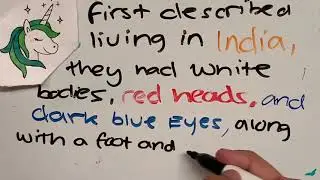 First described
living in India,
they had white
bodies, red heads, and
dark blue Eyes, along
with a foot and